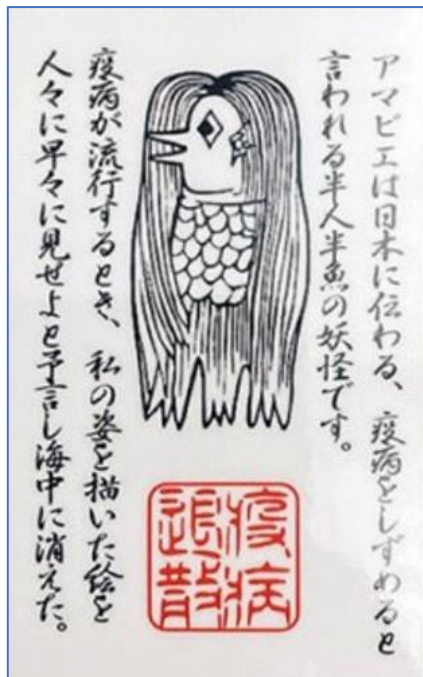 アマビエは日本に伝わる、疫病をしずめると
言われる半人半魚の妖怪です。
疫病が流行するとき、私の姿を描いた絵を
人々に早々に見せよと予言し海中に消えた。
疫病
退散